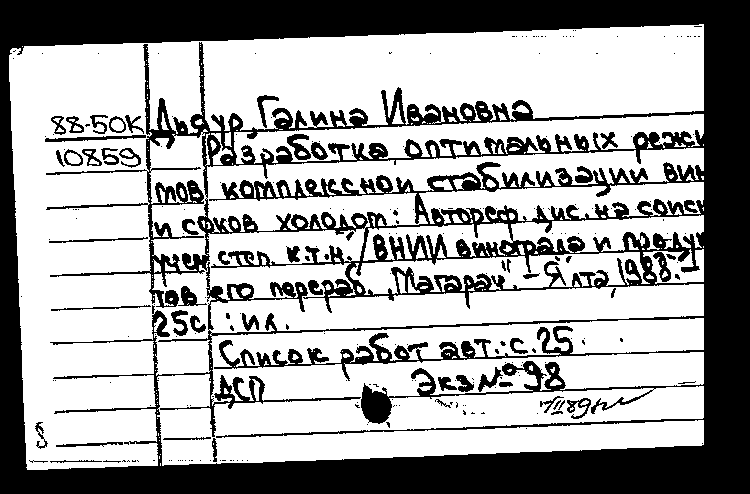 88-50К Дьяур, Галина Ивановна
10859 Разработка оптимальных режи
мов комплексной стабилизации вин
и соков холодом: Автореф. дис. на соиск
учен. степ. к.т.н. / ВНИИ винограда и продук
тов его перераб. "Магарач". - Ялта, 1988. -
25с. : ил.
Список работ авт.: с. 25.
ДСП Экз № 98